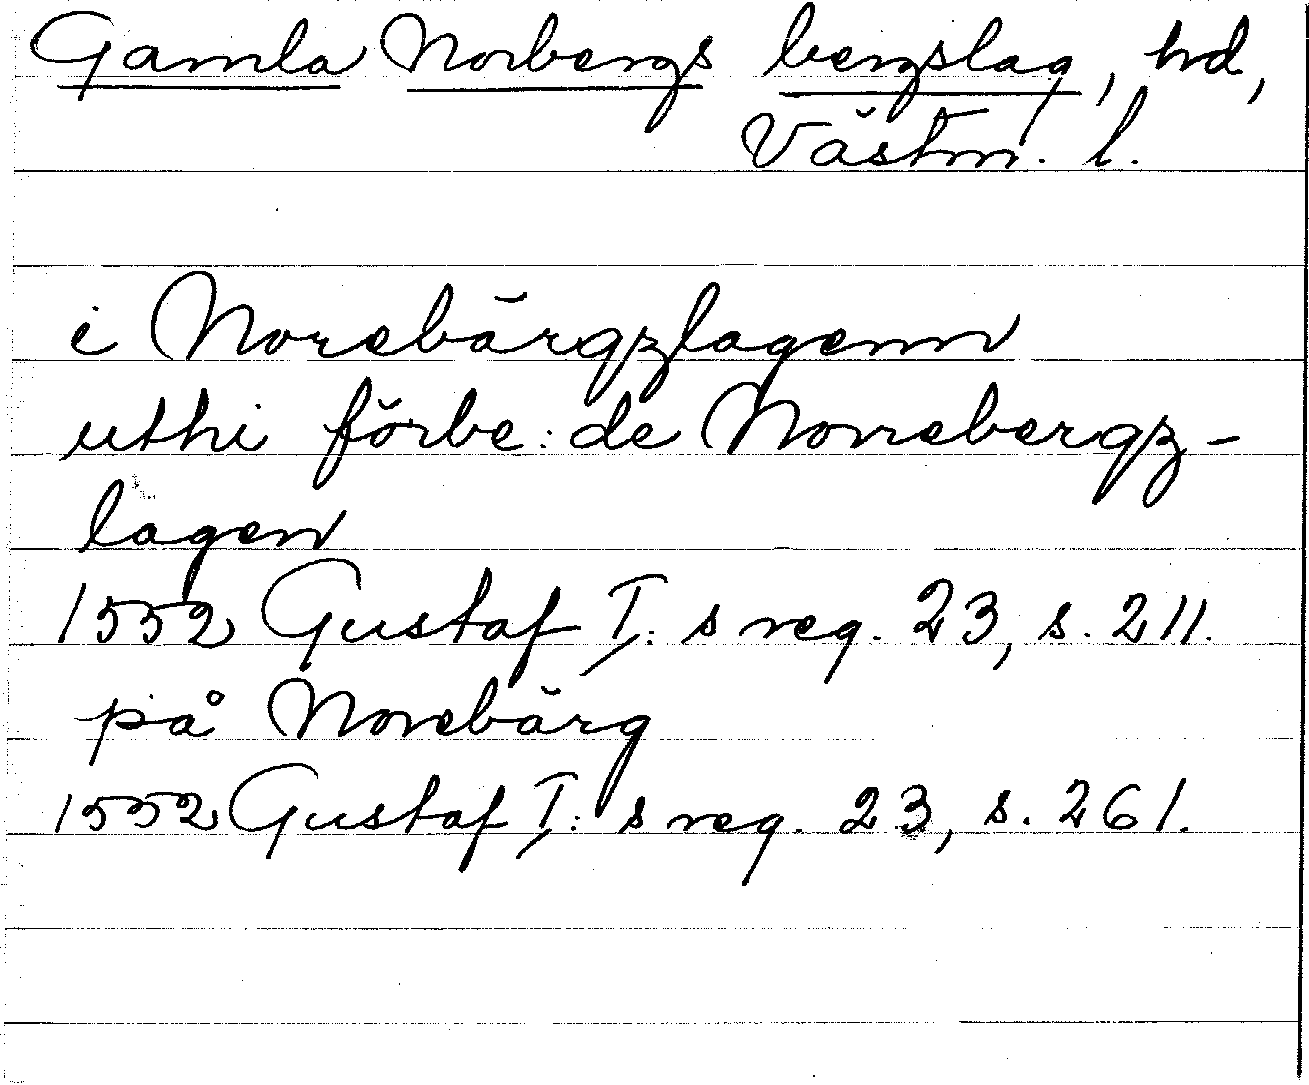 Gamla Norbergs bergslag, hd,
Västm. l.
i Norebärgzlagenn
uthi förbe: de Norrebergz-
lagen
1552 Gustaf I: s reg. 23, s. 211.
på Norebärg
1552 Gustaf I: s reg. 23, s. 261.